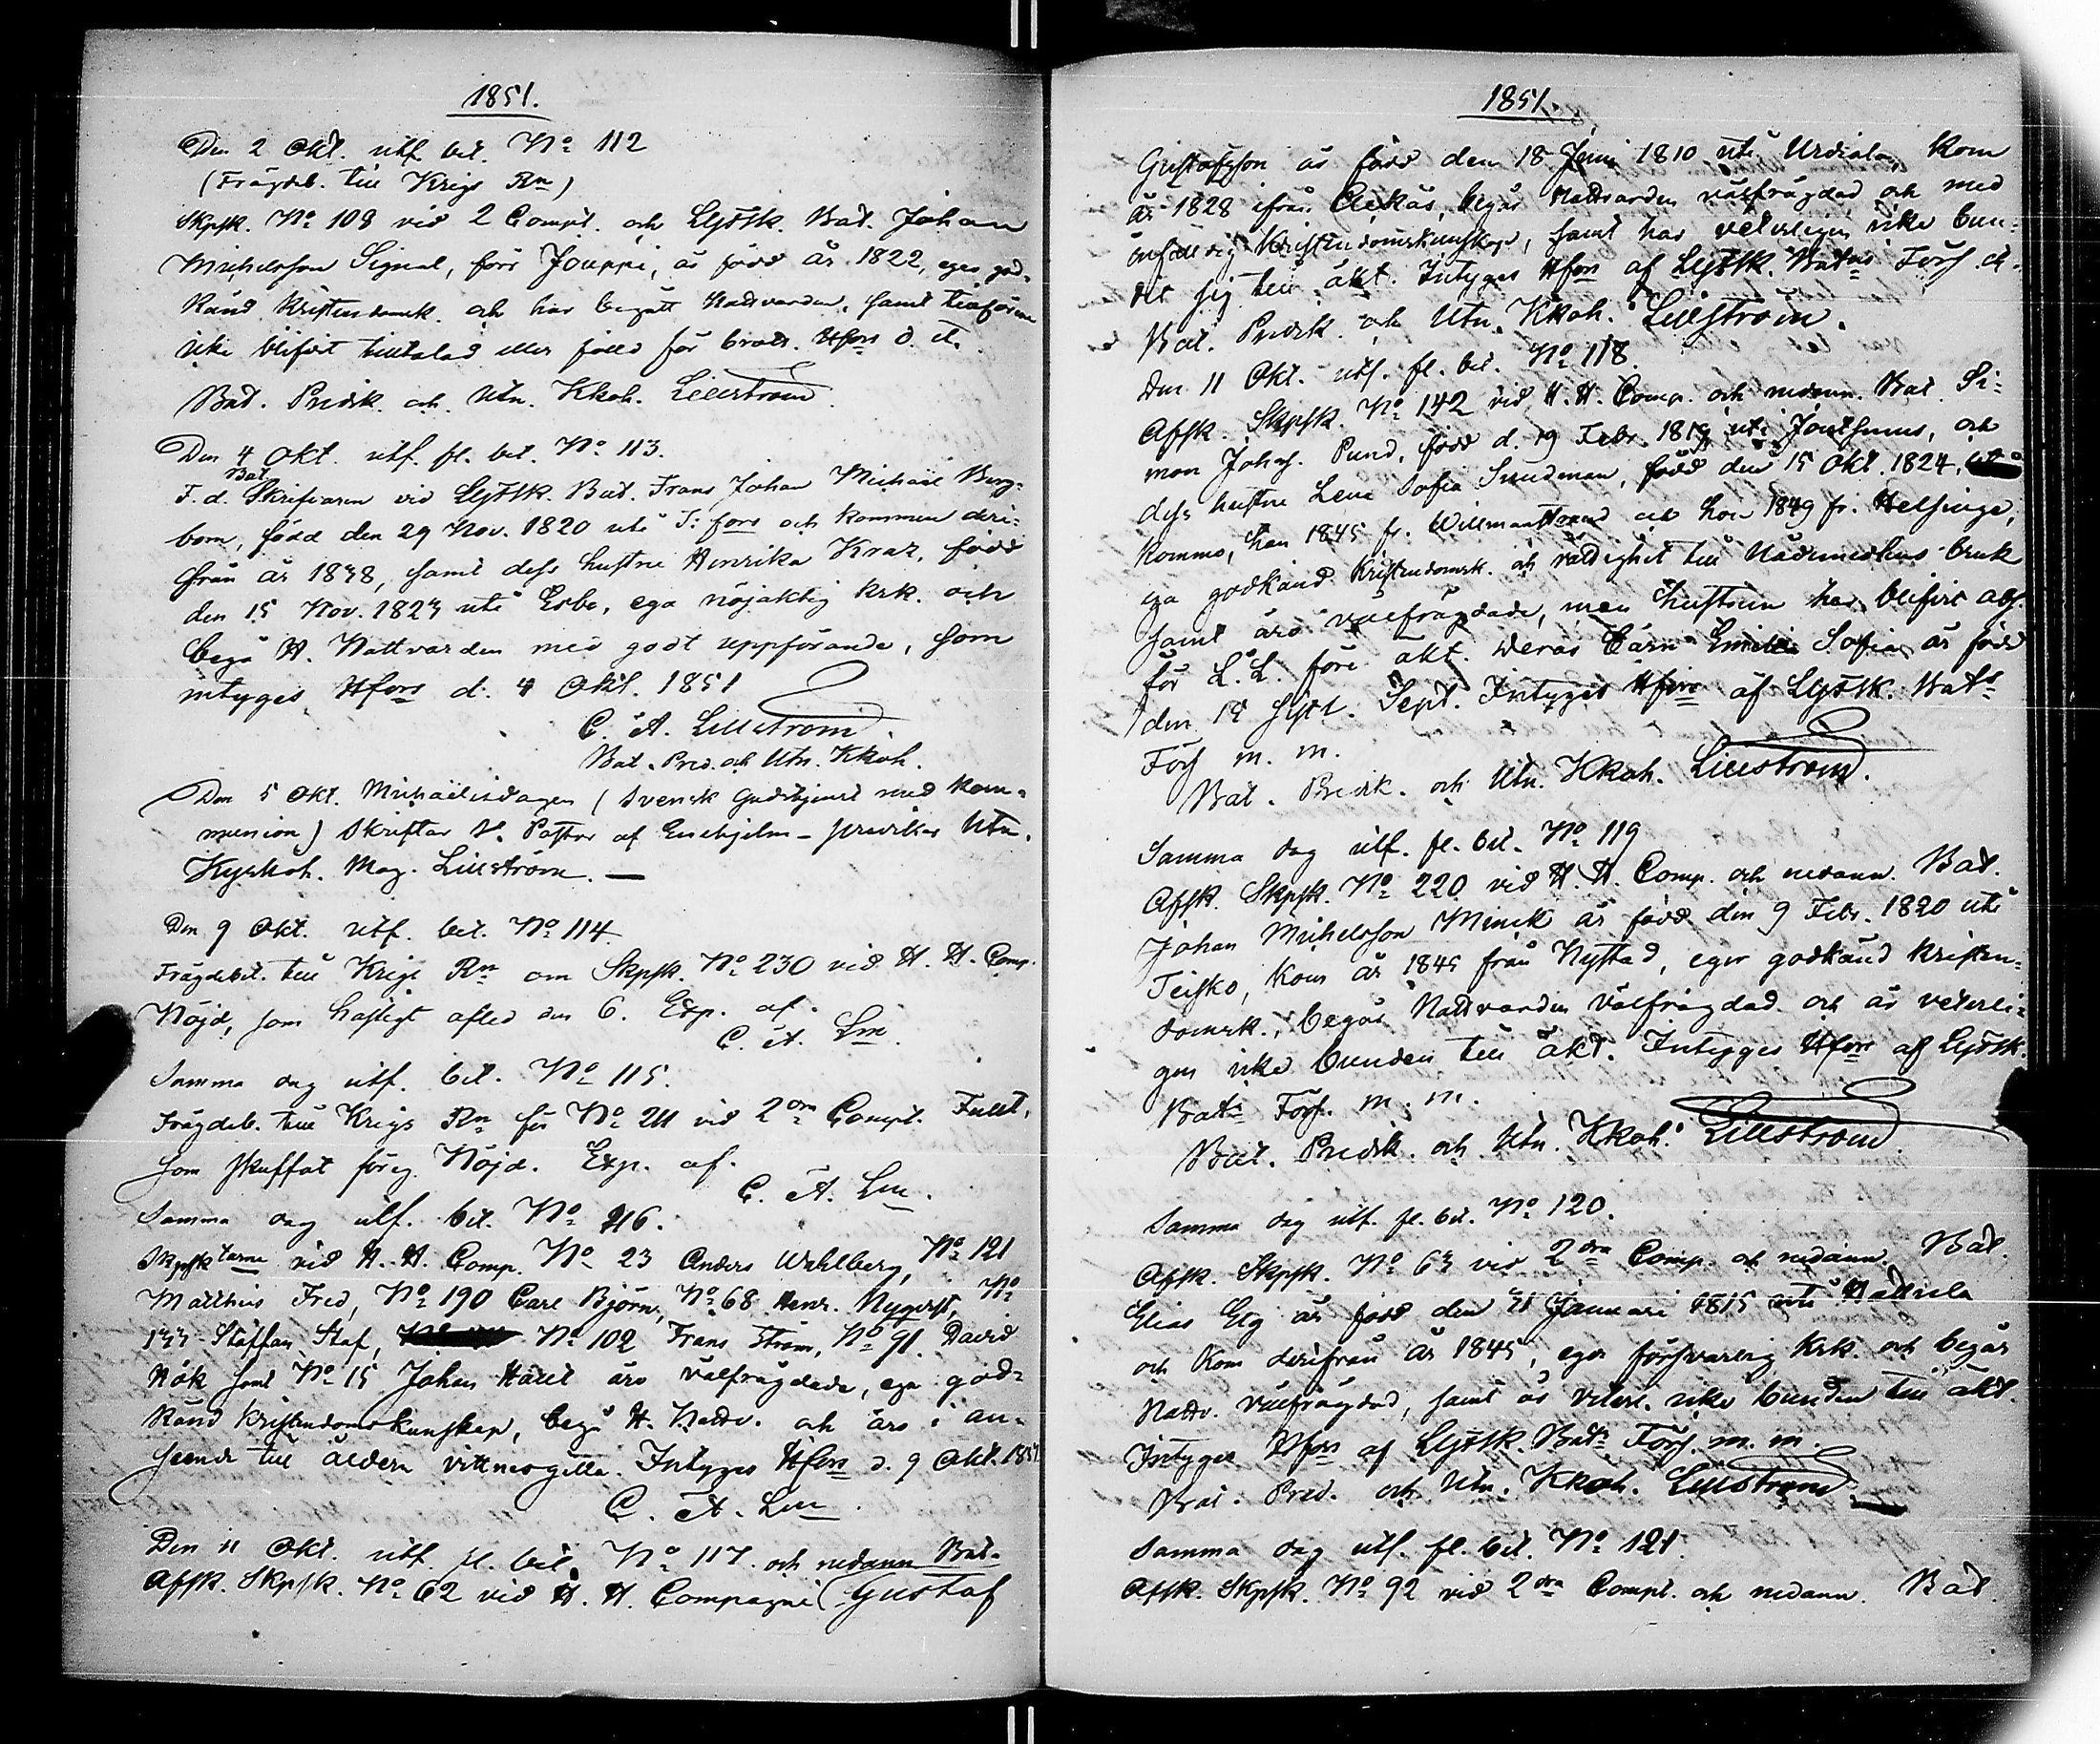 1851.
Den 2 Okt. utf. bet. No 112
(Frågdeb. till Krigs Rn)
Skpsk. No 108 vid 2 Compt. och LgFSk. Bat. Johan
Michelsson Signal, förr Jouppi, är född år 1822, eger god-
känd Kristendomsk. och har begått Nattvarden, samt tillförene
icke blifvit tilltalad eller fälld för brott. Hfors d. ct.
Bat. Predik. och Utn. Kkoh. Lillström.
Den 4 Okt. utf. fl. bet. No 113.
Bat.
F.d. Skrifvaren vid LgFSk. Bat. Frans Johan Michaël Berg-
bom, född den 29 Nov. 1820 uti T:fors och kommen deri-
från år 1838, samt dess hustru Henrika Kraz, född
den 15 Nov. 1823 uti Esbo, ega nöjaktig krk. och
begå H. Nattvarden med godt uppförande, som
intygas Hfors d. 4 Okt. 1851
C. A. Lillström
Bat. Pred. och Utn. Kkoh.
Den 5 Okt. Michaëlisdagen (Svensk Gudstjenst med kom-
munion) Skriftar V. Pastor af Enehjelm - predikar Utn.
Kyrkoh. Mag. Lillström. —
Den 9 Okt. utf. bet. No 114.
Frågdebet. till Krigs Rn om Skpsk. No 230 vid H. H. Comp.
Nöjd, som hastigt afled den 6. Exp. af.
C. A. Lm
Samma dag utf. bet. No 115.
Frågdeb. till Krigs Rn för No 211 vid 2dra Compt. Fullt,
som skuffat föreg. Nöjd. Exp. af.
C. A. Lm.
Samma dag utf. bet. No 116.
Skpsktarne vid H. H. Comp. No 23 Anders Wahlberg, No 121
Matthias Fred, No 190 Carl Björn, No 68 Henr. Nyqvist, No
133 Staffan Staf, No 102 Frans Ström, No 91 David
Rök samt No 15 Johan Häll äro välfrägdade, ega god-
känd Kristendomskunskap, begå H. Nattv. och äro i an-
seende till åldern vittnesgilla. Intygas Hfors d. 9 Okt. 1851.
C. A. Lm
Den 11 Okt. utf. fl. bet. No 117. och nedann Bat.
Afsk. Skpsk. No 62 vid H. H. Compagni (Gustaf
1851.
Gustafsson är född den 18 Juni 1810 uti Urdiala, kom
år 1828 ifrån begår Nattvarden välfrägdad och med
Kristendomskunskap, samt har veterligen icke bun-
det sig till äkt. Intygas Hfors af LgFSk. Batns Förs. d.
Bat. Predik. och Utn. Kkoh. Lillström.
Den 11 Okt. utf. fl. bet. No 118.
Afsk. Skpsk. No 142 vid H. H. Comp. och nedann. Bat. Si-
mon Johns. Pund, född d. 19 Febr. 1819 uti Joutsenus, och
dess hustru Lena Sofia Sundman, född den 15 Okt. 1824,
komna, han 1845 fr. Willmanstrand och hon 1849 fr. Helsinge,
ega godkänd Kristendomsk. och rättighet till Nådemedlens bruk
samt äro välfrägdade, men hustrun har blifvit abs.
för L. L. före äkt. Deras barn Emilia Sofia är född
den 15 sistl. Sept. Intygas Hfors af LgFSk. Bats
Förs m. m.
Bat. Predik. och Utn. Kkoh. Lillström.
Samma dag utf. fl. bet. No 119
Afsk. Skpsk. No 220 vid H. H. Comp. och nedann. Bat.
Johan Michelsson Minck är född den 9 Febr. 1820 uti
Teisko, kom år 1845 från Nystad, eger godkänd kristen-
domsk., begår Nattvarden välfrägdad och är veterli-
gen icke bunden till äkt. Intygas Hfors af LgFSk.
Bats Förs. m. m.
Bat. Predik. och Utn. Kkoh. Lillström.
Samma dag utf. fl. bet. No 120.
Afsk. Skpsk. No 63 vid 2dra Comp. och nedann. Bat.
Elias Elg är född den 31 Januari 1815 uti Hattula
och kom derifrån år 1845, eger försvarlig krk. och begår
Nattv. välfrägdad, samt är veterl. icke bunden till äkt.
Intygas Hfors af LgFSk. Bats Förs. m. m.
Bat. Pred. och Utn. Kkoh. Lillström.
Samma dag utf. fl. bet. No 121.
Afsk. Skpsk. No 92 vid 2dra Compt. och nedann. Bat.